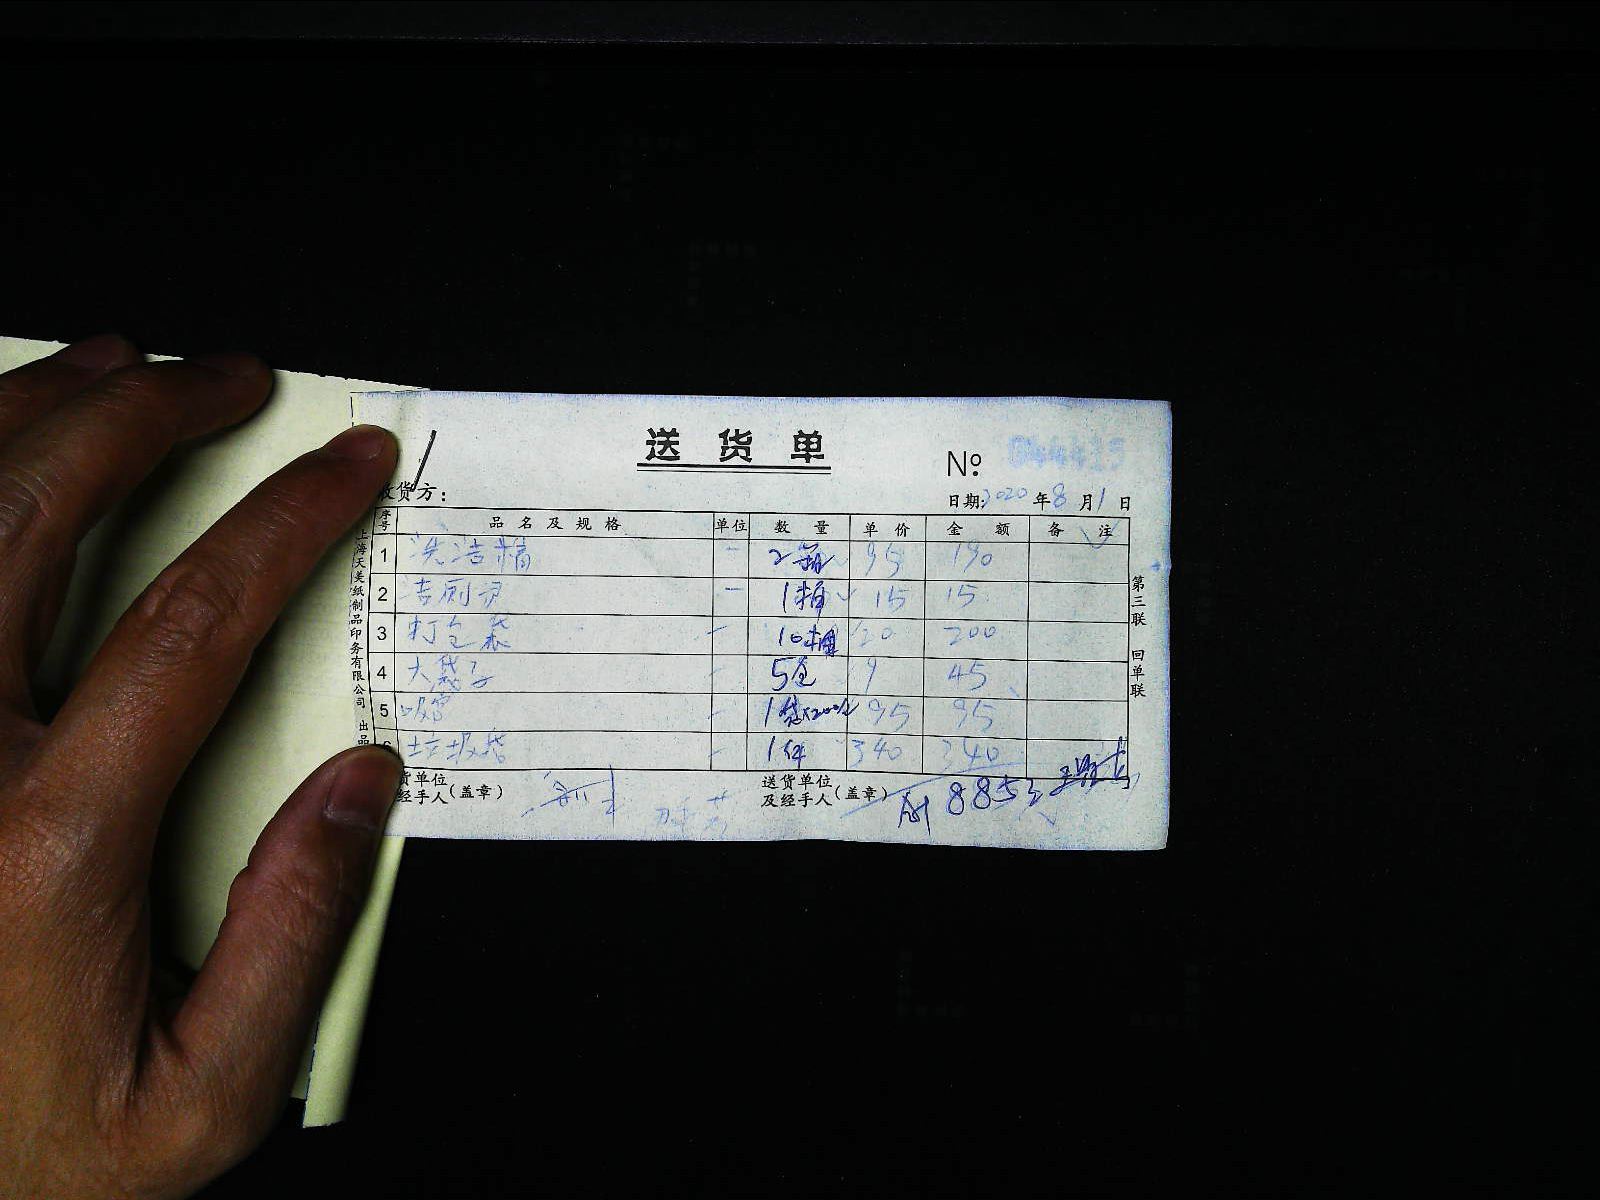 送货单
№ 044415
收货方：
日期: 2020 年 8 月 1 日
序号 品名及规格 单位 数量 单价 金额 备注
1 洗洁精 一 2箱 95 190
2 洁厕灵 一 1箱 15 15
3 打包袋 一 10捆 20 200
4 大袋子 一 5包 9 45
5 吸管 一 1袋 95 95
6 垃圾袋 一 1件 340 340
货单位
经手人（盖章）
送货单位
及经手人（盖章）
885元
上海天美纸制品印务有限公司 出品
第三联 回单联